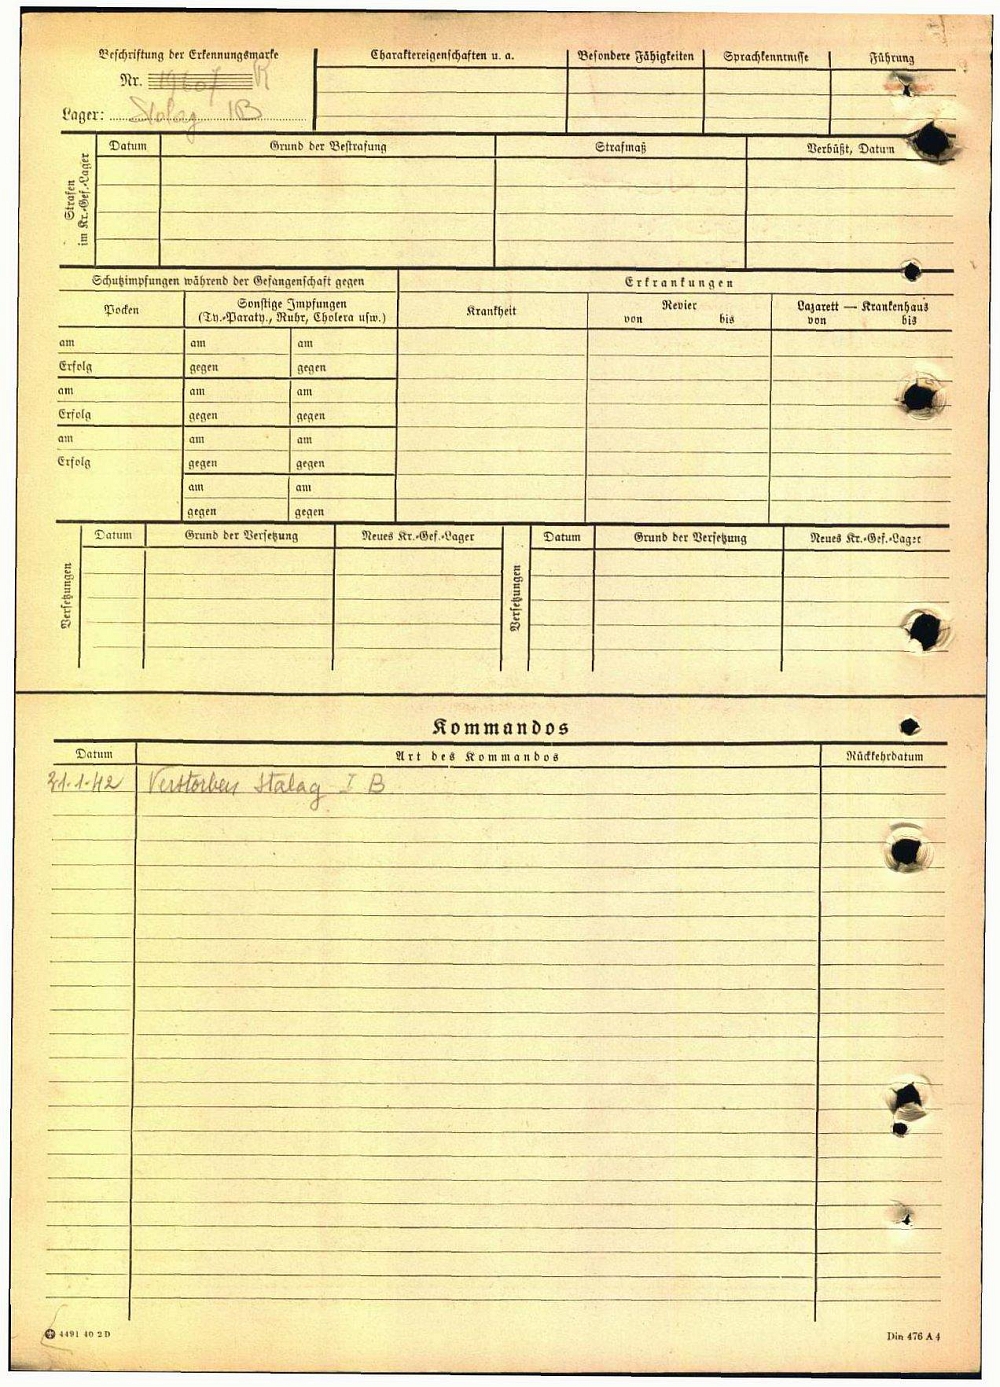 Beschriftung der Erkennungsmarke
Nr. 19607 R
Lager: Stalag IB
Charaktereigenschaften u. a.
Besondere Fähigkeiten
Sprachkenntnisse
Führung
Strafen im Kr.-Gef.-Lager
Datum
Grund der Bestrafung
Strafmaß
Verbüßt, Datum
Schutzimpfungen während der Gefangenschaft gegen
Erkrankungen
Pocken
Sonstige Impfungen
(Ty.-Paraty., Ruhr, Cholera usw.)
Krankheit
Revier
von bis
Lazarett — Krankenhaus
von bis
am am am
Erfolg gegen gegen
am am am
Erfolg gegen gegen
am am am
Erfolg gegen gegen
am am
gegen gegen
Versetzungen
Datum
Grund der Versetzung
Neues Kr.-Gef.-Lager
Versetzungen
Datum
Grund der Versetzung
Neues Kr.-Gef.-Lager
Kommandos
Datum
Art des Kommandos
Rückkehrdatum
31.1.42 Verstorben Stalag I B
4491 40 2D
Din 476 A 4